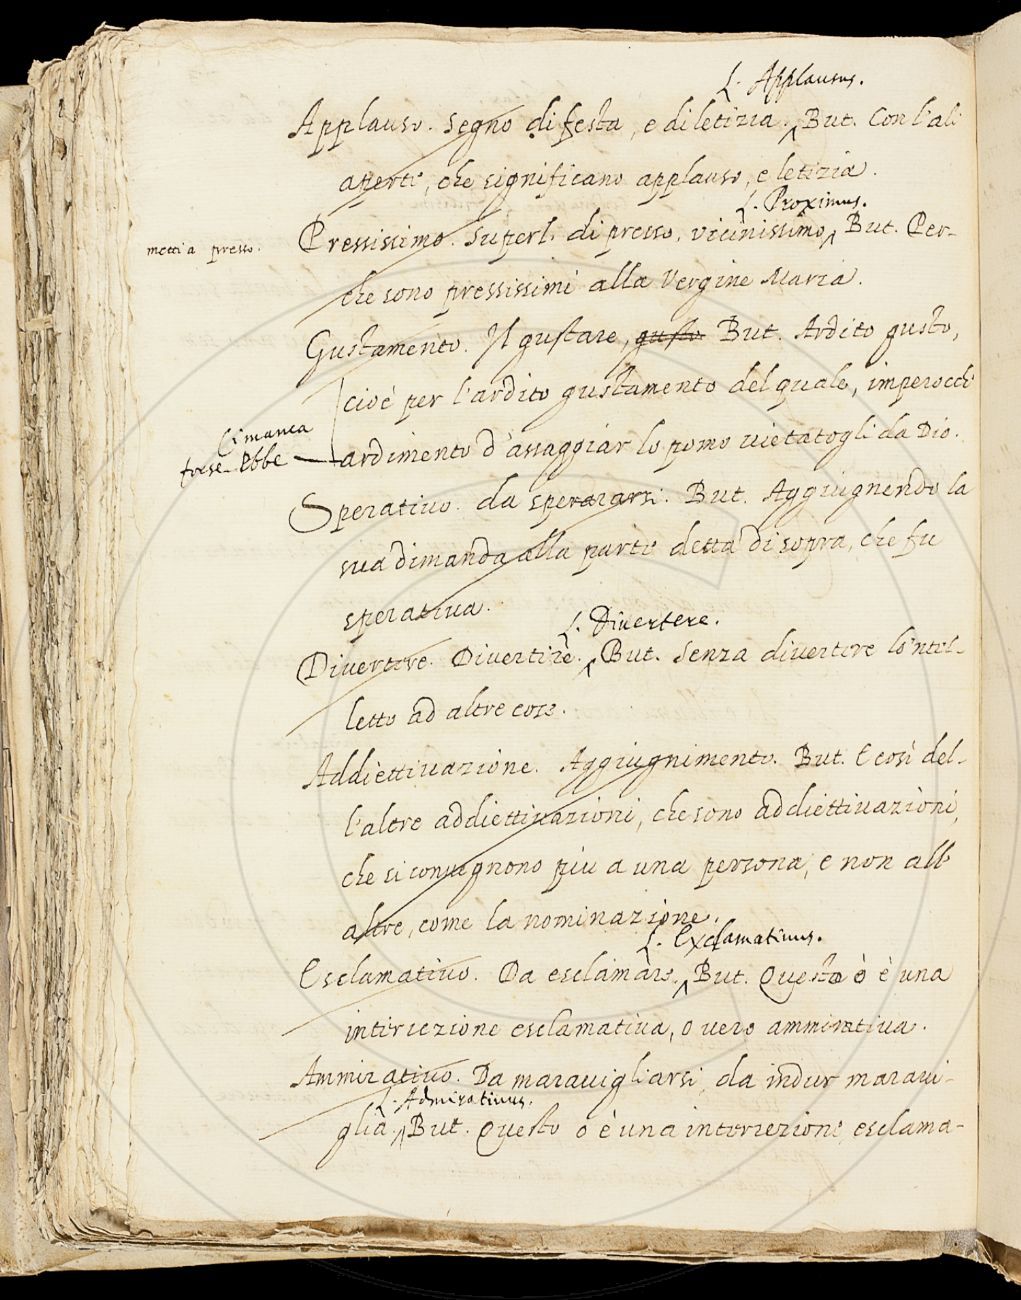 L. Applausus.
Applauso. Segno di festa, e di letizia. But. Con l'ali
aperte, che significano applauso, e letizia.
L. Proximus.
metti a presso.
Pressissimo. Superl. di presso, vicinissimo, But. Per-
che sono pressissimi alla Vergine Maria.
Gustamento. Il gustare, gusto But. Ardito gusto,
cioè per l'ardito gustamento del quale, imperocchè
Ci manca
forse Ebbe
ardimento d'assaggiar lo pomo vietatogli da Dio.
Sperativo. da sperarsi. But. Aggiugnendo la
sua dimanda alla parte detta di sopra, che fu
sperativa.
L. Divertere.
Divertere. Divertire. But. Senza divertere lo 'ntel-
letto ad altre cose.
Addiettivazione. Aggiugnimento. But. E così del-
l'altre addiettivazioni, che sono addiettivazioni,
che si convegnono piu a una persona, e non all'
altre, come la nominazione.
L. Exclamativus.
Esclamativo. Da esclamare. But. Questo ò è una
interiezione esclamativa, o vero ammirativa.
Ammirativo. Da maravigliarsi, da indur maravi-
L. Admirativus.
glia. But. Questo o è una interiezione esclama-